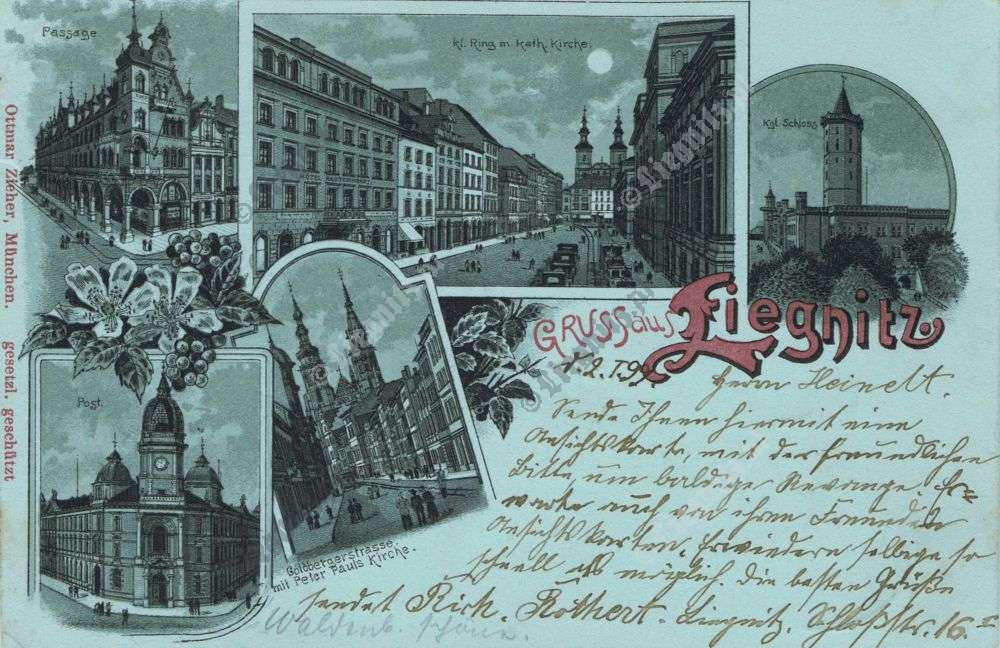 Passage
kl. Ring m. kath. Kirche.
Kgl. Schloss
Ottmar Zieher, München. gesetzl. geschützt
GRUSS aus Liegnitz
Post.
Goldbergerstrasse.
mit Peter Pauls Kirche.
HOTEL
Herrn Heinelt.
Sende Ihnen hiermit eine
Ansichtskarte, mit der freundlichen
Bitte, um baldige Revange. Er=
warte auch von ihren Freunden
Ansichtskarten. Erwiedern selbige so
schnell als möglich. Die besten Grüße
sendet Rich. Rothert. Liegnitz. Schloßstr. 16. I
Waldenb.